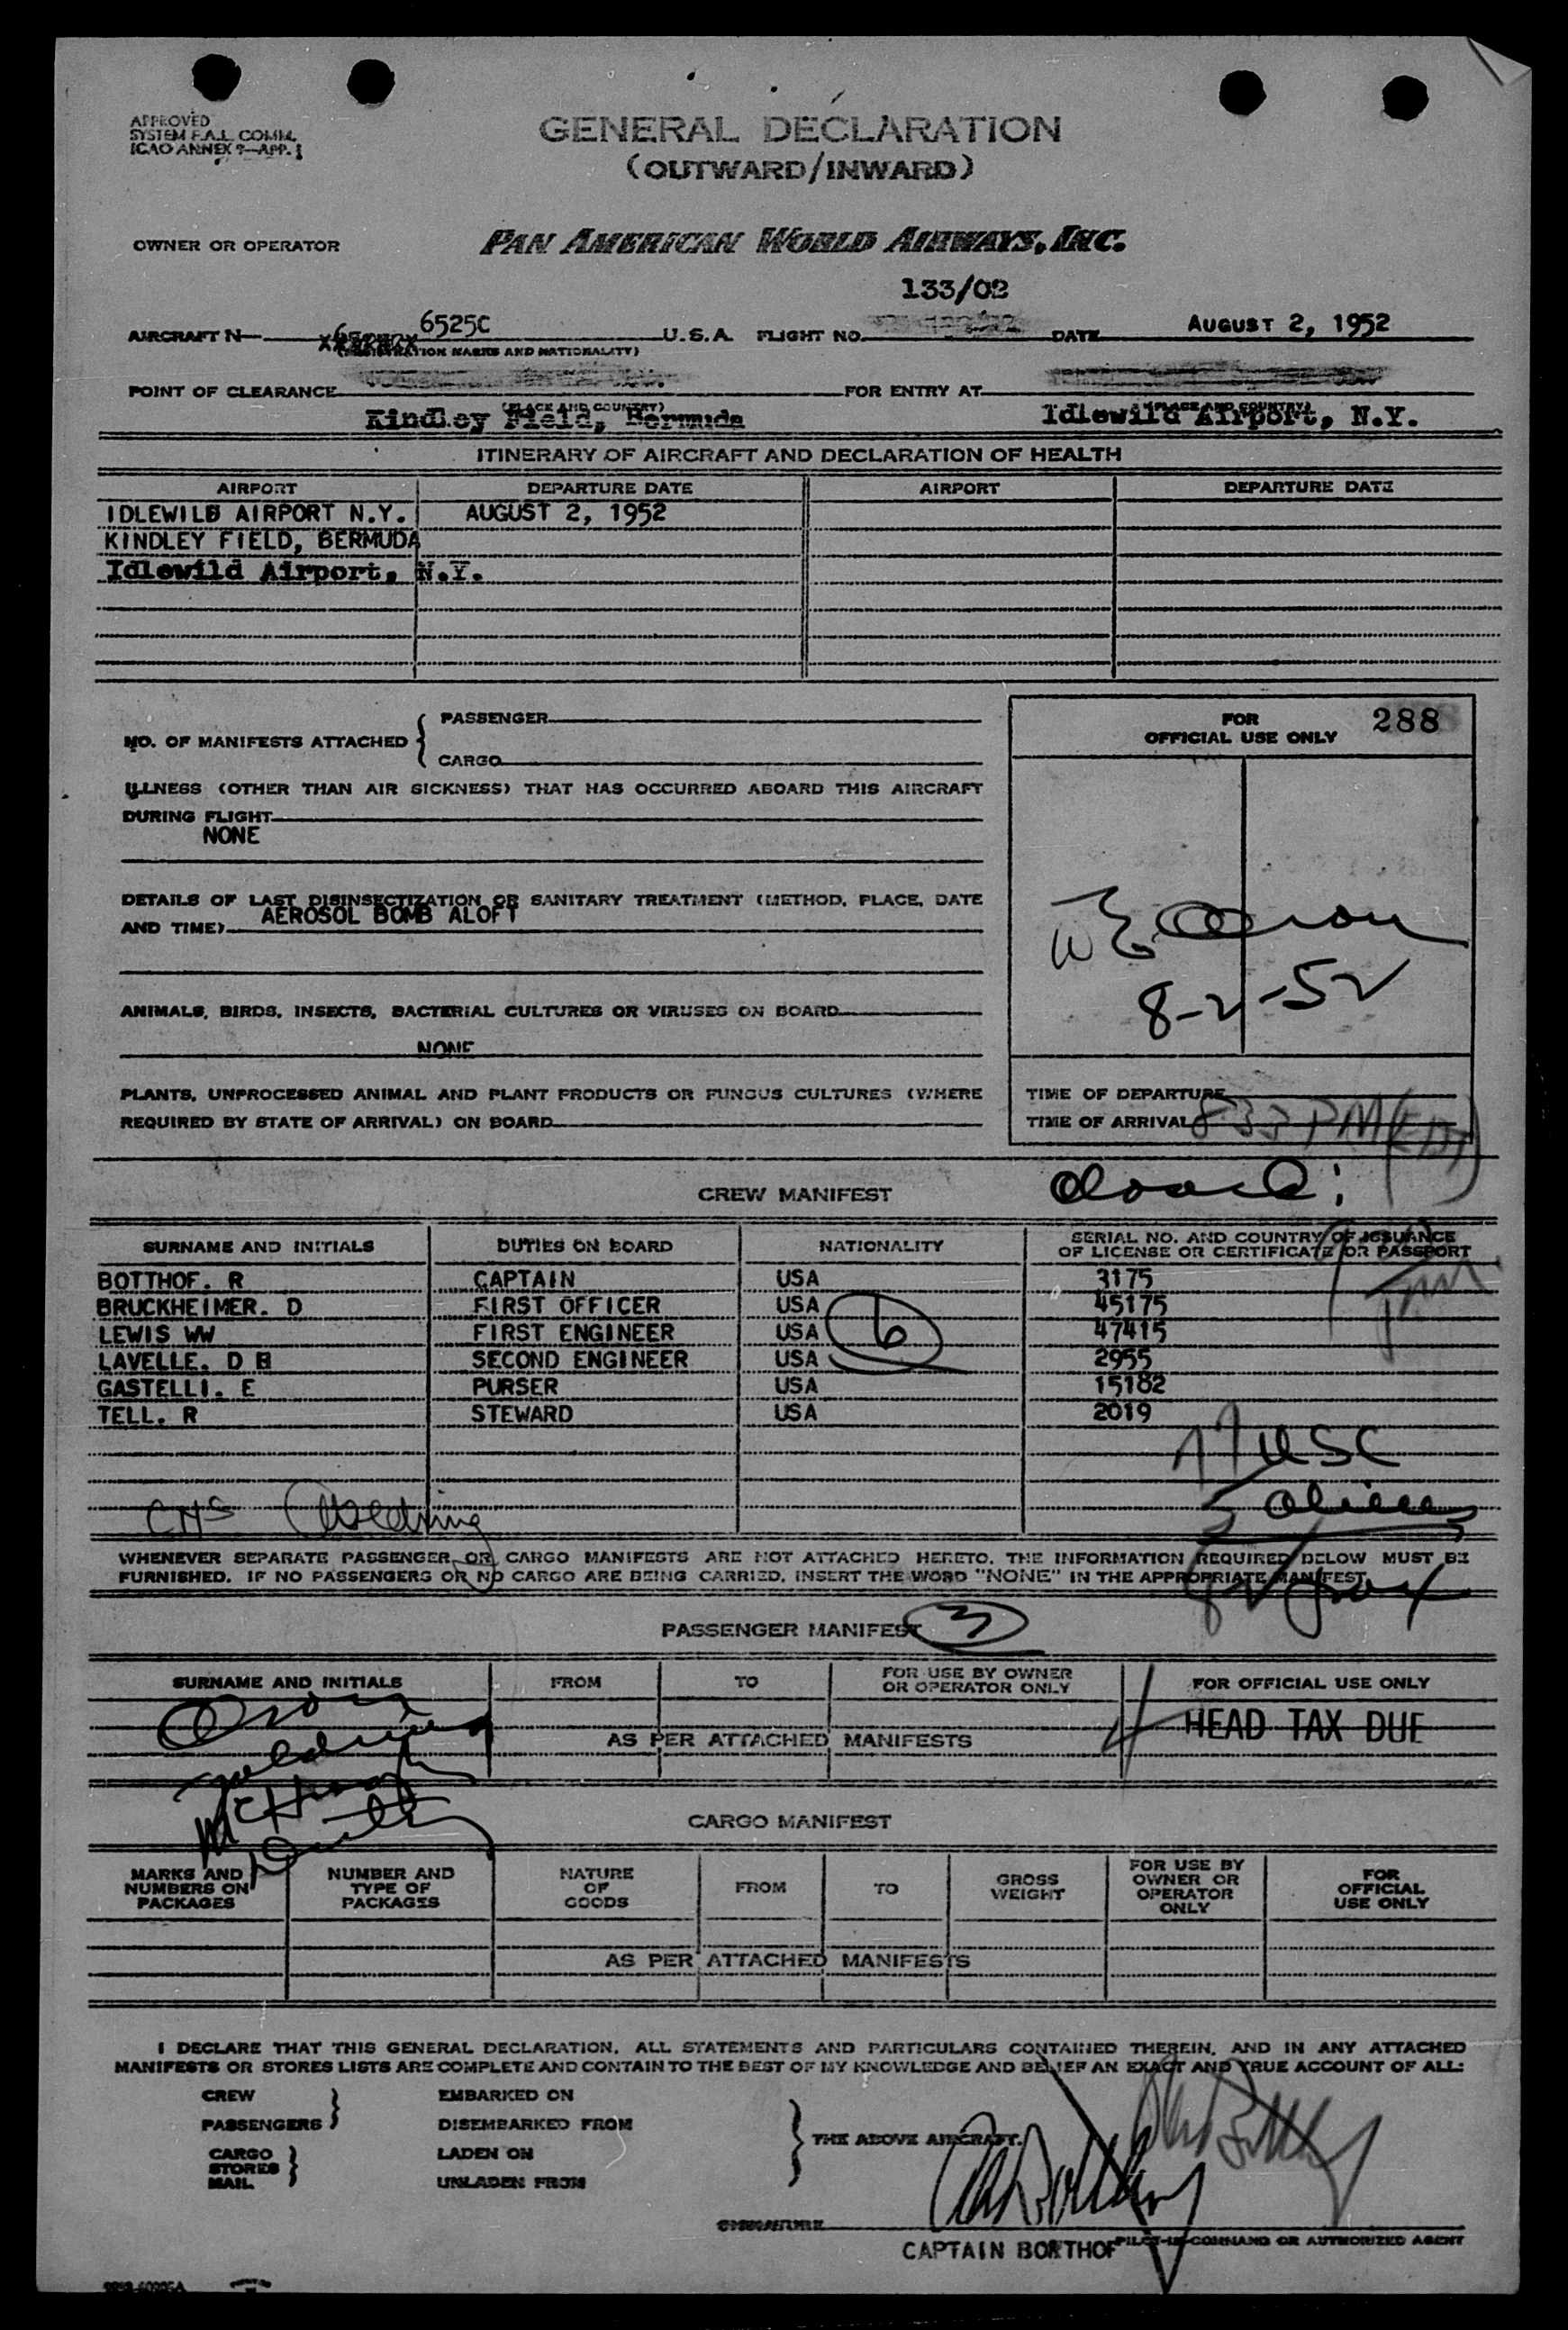 APPROVED
SYSTEM F.A.L. COMM.
ICAO ANNEX 9—APP. 1
GENERAL DECLARATION
(OUTWARD/INWARD)
OWNER OR OPERATOR PAN AMERICAN WORLD AIRWAYS, INC.
133/02
AIRCRAFT N 6525C U.S.A. FLIGHT NO. DATE AUGUST 2, 1952
(REGISTRATION MARKS AND NATIONALITY)
POINT OF CLEARANCE FOR ENTRY AT
(PLACE AND COUNTRY) (PLACE AND COUNTRY)
Kindley Field, Bermuda Idlewild Airport, N.Y.
ITINERARY OF AIRCRAFT AND DECLARATION OF HEALTH
AIRPORT DEPARTURE DATE AIRPORT DEPARTURE DATE
IDLEWILD AIRPORT N.Y. AUGUST 2, 1952
KINDLEY FIELD, BERMUDA
Idlewild Airport, N.Y.
NO. OF MANIFESTS ATTACHED { PASSENGER
CARGO
FOR OFFICIAL USE ONLY 288
ILLNESS (OTHER THAN AIR SICKNESS) THAT HAS OCCURRED ABOARD THIS AIRCRAFT
DURING FLIGHT
NONE
DETAILS OF LAST DISINSECTIZATION OR SANITARY TREATMENT (METHOD, PLACE, DATE
AND TIME) AEROSOL BOMB ALOFT
8-2-52
ANIMALS, BIRDS, INSECTS, BACTERIAL CULTURES OR VIRUSES ON BOARD
NONE
PLANTS, UNPROCESSED ANIMAL AND PLANT PRODUCTS OR FUNGUS CULTURES (WHERE
REQUIRED BY STATE OF ARRIVAL) ON BOARD
TIME OF DEPARTURE
TIME OF ARRIVAL 833 PM (EDT)
CREW MANIFEST
SURNAME AND INITIALS DUTIES ON BOARD NATIONALITY SERIAL NO. AND COUNTRY OF ISSUANCE
OF LICENSE OR CERTIFICATE OR PASSPORT
BOTTHOF. R CAPTAIN USA 3175
BRUCKHEIMER. D FIRST OFFICER USA 45175
LEWIS WW FIRST ENGINEER USA 6 47415
LAVELLE. D B SECOND ENGINEER USA 2955
GASTELLI. E PURSER USA 15182
TELL. R STEWARD USA 2019
USC
5 aliens
CHS
WHENEVER SEPARATE PASSENGER OR CARGO MANIFESTS ARE NOT ATTACHED HERETO, THE INFORMATION REQUIRED BELOW MUST BE
FURNISHED. IF NO PASSENGERS OR NO CARGO ARE BEING CARRIED, INSERT THE WORD "NONE" IN THE APPROPRIATE MANIFEST.
PASSENGER MANIFEST 3
SURNAME AND INITIALS FROM TO FOR USE BY OWNER
OR OPERATOR ONLY FOR OFFICIAL USE ONLY
HEAD TAX DUE
AS PER ATTACHED MANIFESTS
McHugh
CARGO MANIFEST
MARKS AND
NUMBERS ON
PACKAGES NUMBER AND
TYPE OF
PACKAGES NATURE
OF
GOODS FROM TO GROSS
WEIGHT FOR USE BY
OWNER OR
OPERATOR
ONLY FOR
OFFICIAL
USE ONLY
AS PER ATTACHED MANIFESTS
I DECLARE THAT THIS GENERAL DECLARATION, ALL STATEMENTS AND PARTICULARS CONTAINED THEREIN, AND IN ANY ATTACHED
MANIFESTS OR STORES LISTS ARE COMPLETE AND CONTAIN TO THE BEST OF MY KNOWLEDGE AND BELIEF AN EXACT AND TRUE ACCOUNT OF ALL:
CREW EMBARKED ON
PASSENGERS DISEMBARKED FROM
CARGO LADEN ON
STORES
MAIL UNLADEN FROM
THE ABOVE AIRCRAFT.
SIGNATURE
PILOT-IN-COMMAND OR AUTHORIZED AGENT
CAPTAIN BOTTHOF